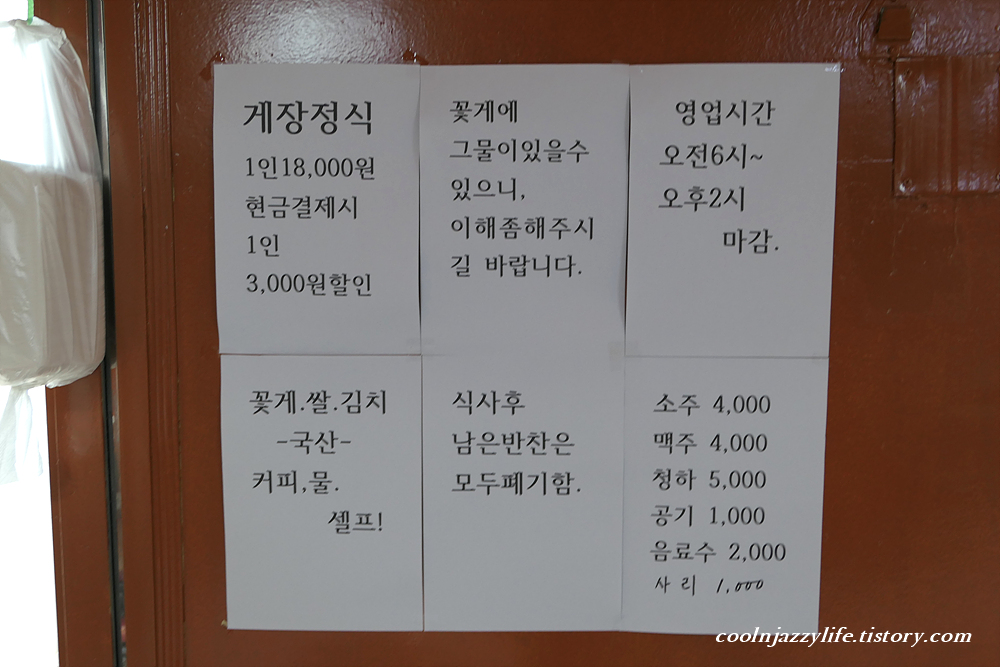 게장정식
1인18,000원
현금결제시
1인
3,000원할인
꽃게에
그물이있을수
있으니,
이해좀해주시
길 바랍니다.
영업시간
오전6시~
오후2시
마감.
꽃게.쌀.김치
-국산-
커피,물.
셀프!
식사후
남은반찬은
모두폐기함.
소주 4,000
맥주 4,000
청하 5,000
공기 1,000
음료수 2,000
사리 1,000
coolnjazzylife.tistory.com